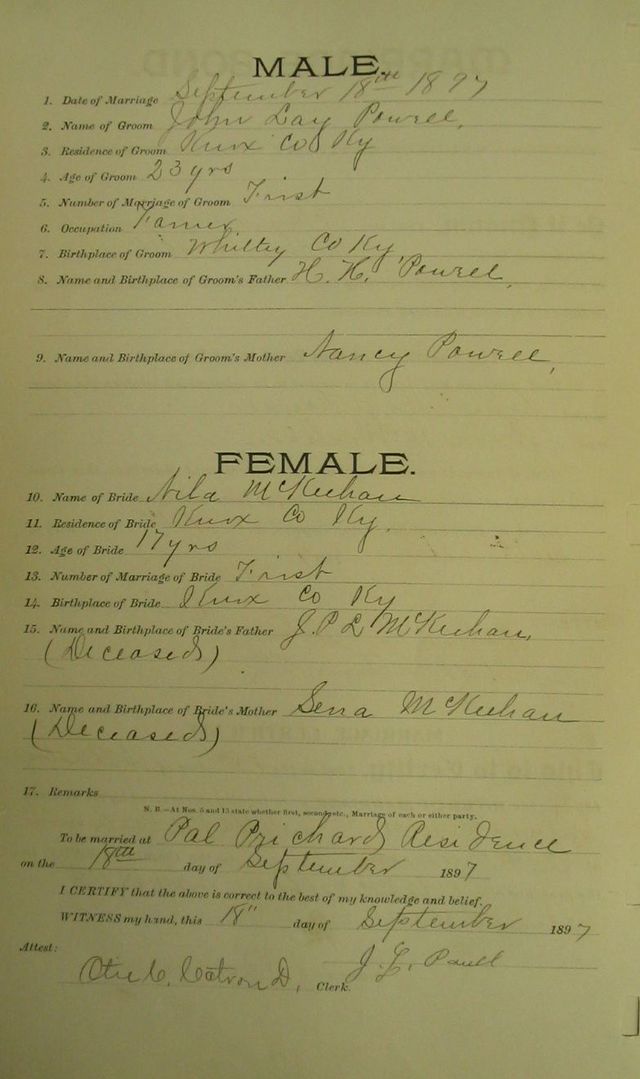 MALE.
1. Date of Marriage September 18th 1897
2. Name of Groom John Lay Powell,
3. Residence of Groom Knox Co Ky
4. Age of Groom 23 yrs
5. Number of Marriage of Groom First
6. Occupation Famer
7. Birthplace of Groom Whitley Co Ky,
8. Name and Birthplace of Groom's Father H. H. Powell,
9. Name and Birthplace of Groom's Mother Nancy Powell,
FEMALE.
10. Name of Bride Nila McKeehan
11. Residence of Bride Knox Co Ky,
12. Age of Bride 17 yrs
13. Number of Marriage of Bride First
14. Birthplace of Bride Knox Co Ky
15. Name and Birthplace of Bride's Father J. P L McKeehan,
(Deceased)
16. Name and Birthplace of Bride's Mother Sena McKeehan
(Deceased)
17. Remarks
N. B.—At Nos. 5 and 13 state whether first, second, etc., Marriage of each or either party.
To be married at Pal Prichards Residence
on the 18th day of September 1897
I CERTIFY that the above is correct to the best of my knowledge and belief.
WITNESS my hand, this 18" day of September 1897
Attest: J. L. Powell
Catron D, Clerk.